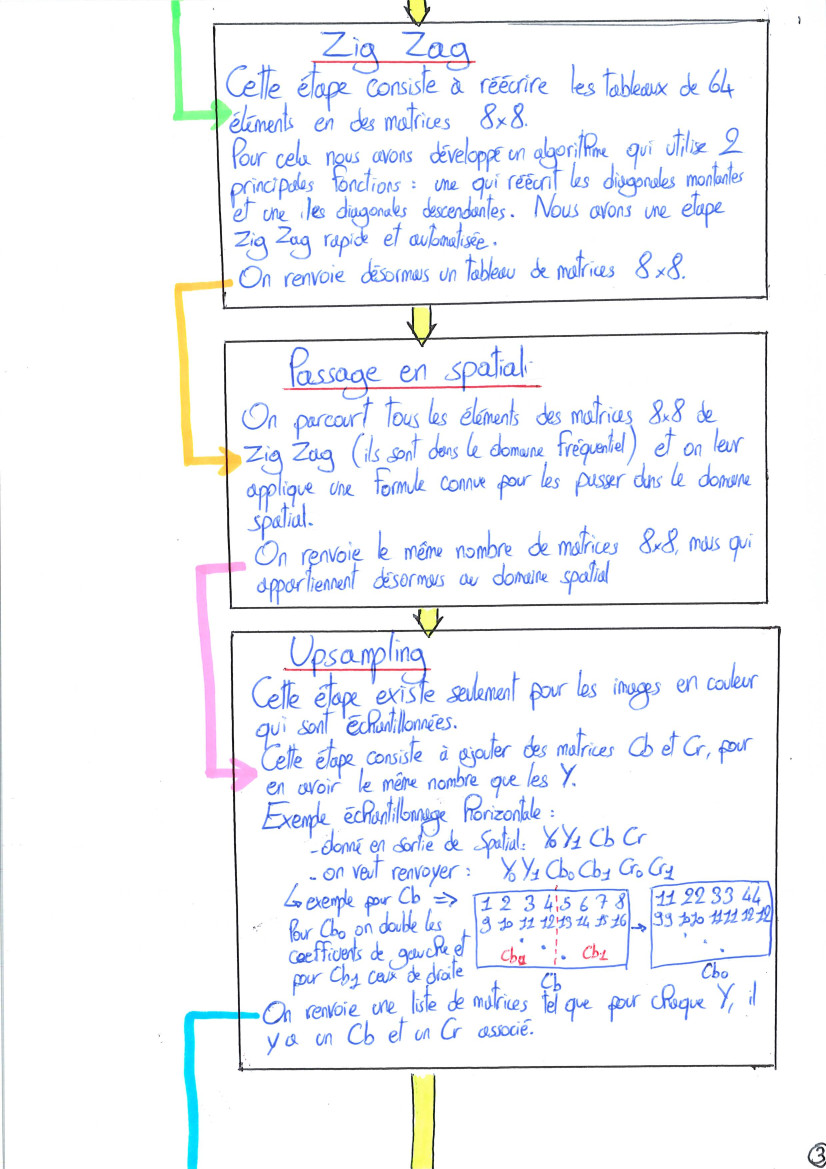 Zig Zag
Cette étape consiste à réécrire les tableaux de 64
éléments en des matrices 8x8.
Pour cela nous avons développé un algorithme qui utilise 2
principales fonctions : une qui réécrit les diagonales montantes
et une les diagonales descendantes. Nous avons une etape
Zig Zag rapide et automatisée.
On renvoie désormais un tableau de matrices 8x8.
Passage en spatial
On parcourt tous les éléments des matrices 8x8 de
Zig Zag (ils sont dans le domaine fréquentiel) et on leur
applique une formule connue pour les passer dans le domaine
spatial.
On renvoie le même nombre de matrices 8x8, mais qui
appartiennent désormais au domaine spatial
Upsampling
Cette étape existe seulement pour les images en couleur
qui sont échantillonnées.
Cette étape consiste à ajouter des matrices Cb et Cr, pour
en avoir le même nombre que les Y.
Exemple échantillonnage horizontale :
- donné en sortie de spatial : Y0 Y1 Cb Cr
- on veut renvoyer : Y0 Y1 Cb0 Cb1 Cr0 Cr1
↳ exemple pour Cb =>
Pour Cb0 on double les
coefficients de gauche et
pour Cb1 ceux de droite
1 2 3 4 5 6 7 8
9 10 11 12 13 14 15 16
Cb0 Cb1
Cb
→
11 22 33 44
99 1010 1111 1212
Cb0
On renvoie une liste de matrices tel que pour chaque Y, il
y a un Cb et un Cr associé.
3